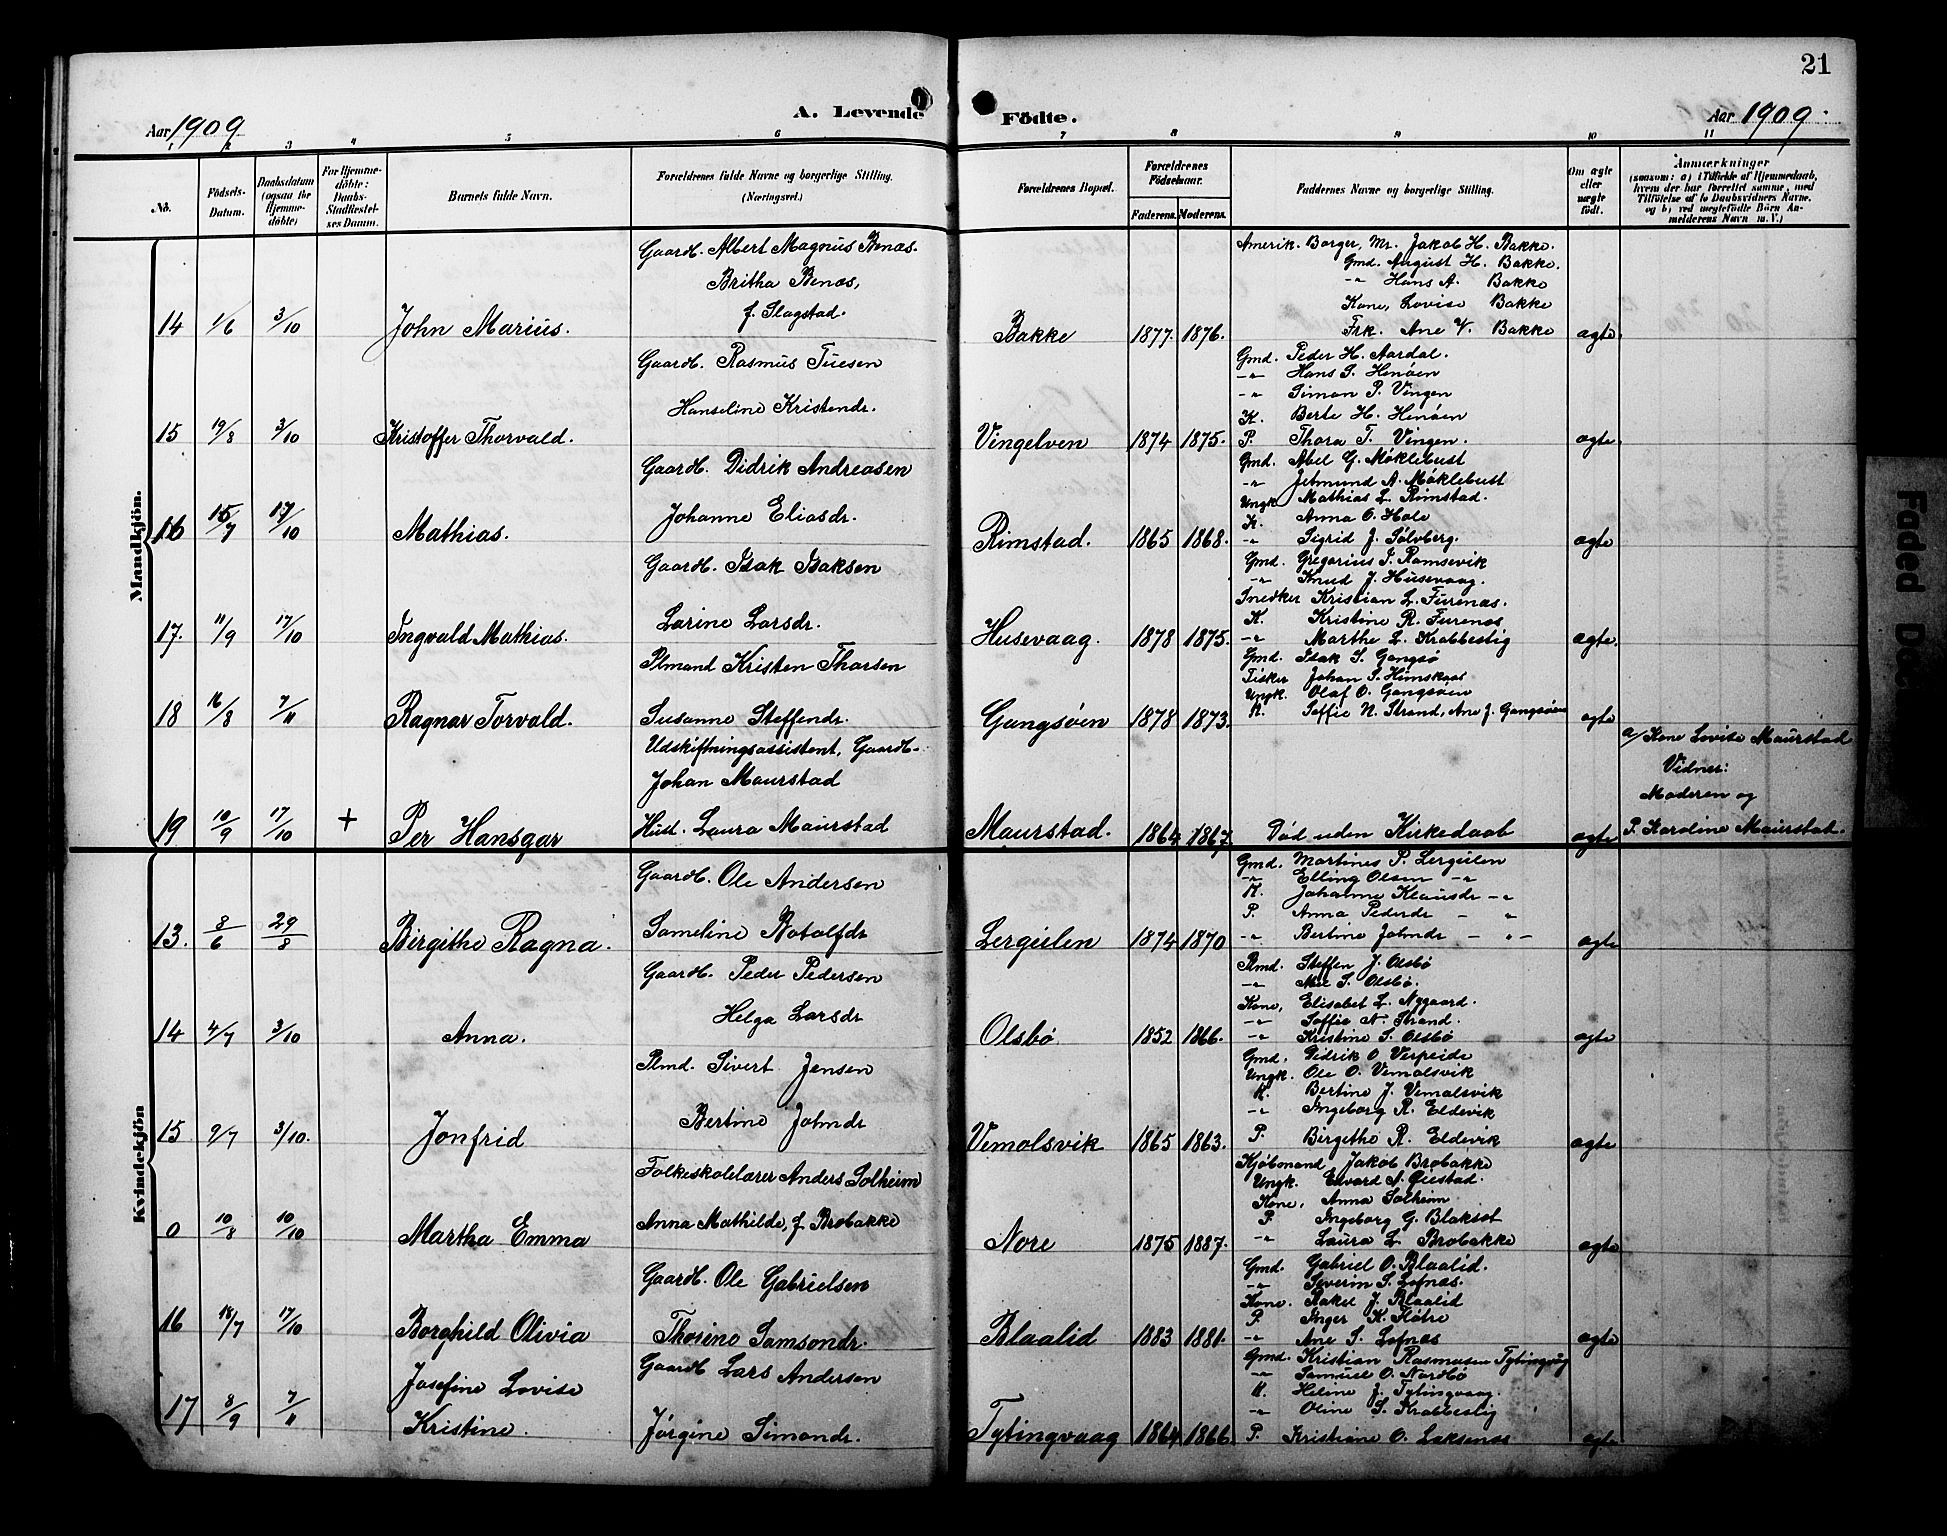 21
A. Levende Födte.
Aar 1909
Aar 1909.
1 2 3 4 5 6 7 8 9 10 11
No.
Födsels-Datum.
Daabsdatum (ogsaa for Hjemmedöbte)
For Hjemmedöbte: Daabs-Stadfæstelses Datum.
Barnets fulde Navn.
Forældrenes fulde Navne og borgerlige Stilling. (Næringsvei.)
Forældrenes Bopæl.
Forældrenes Födselsaar.
Faderens. Moderens.
Faddernes Navne og borgerlige Stilling.
Om ægte eller uægte födt.
Anmærkninger
(saasom: a) i Tilfælde af Hjemmedaab, hvem der har forrettet samme, med Tilföielse af to Daabsvidners Navne, og b) ved uægtefödte Börn Anmelderens Navn m. V.)
Mandkjön.
14 1/6 3/10 John Marius.
Gaardb. Albert Magnus Benæs.
Britha Benæs,
f. Slagstad.
Bakke 1877. 1876.
Amerik. Borger, Mr. Jakob H. Bakke.
Gmd. August H. Bakke.
-"- Hans A. Bakke
Kone, Lovise Bakke
Frk. Ane V. Bakke
ægte.
15 19/8 3/10 Kristoffer Thorvald.
Gaardb. Rasmus Tuesen
Hanseline Kristendr.
Vingelven 1874 1875.
Gmd. Peder H. Aardal.
-"- Hans S. Henöen
-"- Simon P. Vingen
K. Berte H. Henöen
P. Thora T. Vingen.
ægte
16 15/7 17/10 Mathias.
Gaardb. Didrik Andreasen
Johanne Eliasdr.
Rimstad. 1865 1868.
Gmd. Abel G. Möklebust
-"- Jetmund A. Möklebust
Ungk. Mathias L. Rimstad.
K. Anna O. Hole
-"- Sigrid J. Sölvberg.
ægte
17. 11/9 17/10 Ingvald Mathias.
Gaardb. Isak Isaksen
Larine Larsdr.
Husevaag. 1878 1875.
Gmd. Gregorius I. Ramsevik
-"- Knud J. Husevaag.
Snedker Kristian L. Furenæs.
K. Kristine R. Furenæs
-"- Marthe L. Krabbestig
ægte.
18 16/8 7/11 Ragnar Torvald.
Plmand Kristen Thorsen
Susanne Steffendr.
Gangsöen 1878 1873.
Gmd. Isak S. Gangsö
Fisker Johan S. Hennskaar
Ungk. Olaf O. Gangsöen
K. Soffie N. Strand, Ane J. Gangsöen
ægte
19 10/9 17/10 + Per Hansgar
Udskiftningsassistent, Gaardb.
Johan Maurstad
Hust. Laura Maurstad
Maurstad. 1864 1867.
Död uden Kirkedaab
ægte
a/ Kone Lovise Maurstad
Vidner:
Moderen og
P. Karoline Maurstad.
Kvindekjön
13. 8/6 29/8 Birgithe Ragna.
Gaardb. Ole Andersen
Sameline Botolfdr
Lergulen 1874 1870
Gmd. Martines P. Lergulen
-"- Elling Olsen -"-
K. Johanne Klausdr -"-
P. Anna Pedersdr - "
-"- Bertine Johndr - "-
ægte
14 4/7 3/10 Anna.
Gaardb. Peder Pedersen
Helga Larsdr
Olsbö 1852 1866.
Plmd. Steffen J. Olsbö
-"- Nils S. Olsbö.
Kone, Elisabet L. Nygaard.
-"- Soffie N. Strand.
-"- Kristine S. Olsbö
ægte
15 9/7 3/10. Jonfrid
Plmd. Sivert Jensen
Bertine Johndr
Vemolsvik 1865 1863.
Gmd. Didrik O. Verpeide
Ungk. Ole O. Vemolsvik
K. Bertine J. Vemolsvik
-"- Ingeborg R. Eldevik
P. Birgithe R. Eldevik
ægte
0 10/8 10/10 Martha Emma
Folkeskolelærer Anders Solheim
Anna Mathilde, f Brobakke
Nore 1875 1887.
Kjöbmand Jakob Brobakke
Ungk. Edvard S. Öiestad.
Kone, Anna Solheim
P. Ingeborg G. Blaksæt
-"- Laura L. Brobakke
ægte
16 18/7 17/10 Borghild Olivia
Gaardb. Ole Gabrielsen
Thorine Samsondr.
Blaalid 1883 1881.
Gmd. Gabriel O. Blaalid.
-"- Severin S. Lofnæs.
Kone. Rakel J. Blaalid
P. Inger K. Flötre
-"- Ane S. Lofnæs
ægte
17 3/9 7/11 Josefine Lovise
Kristine.
Gaardb Lars Andersen
Jörgine Simondr.
Tytingvaag 1864 1866
Gmd. Kristian Rasmusen Tytingvaag
-"- Samuel O. Nordbö
K. Heline J. Tytingvaag.
-"- Oline S. Krabbestig
P. Kristiane O. Laksenæs
ægte
Faded Do